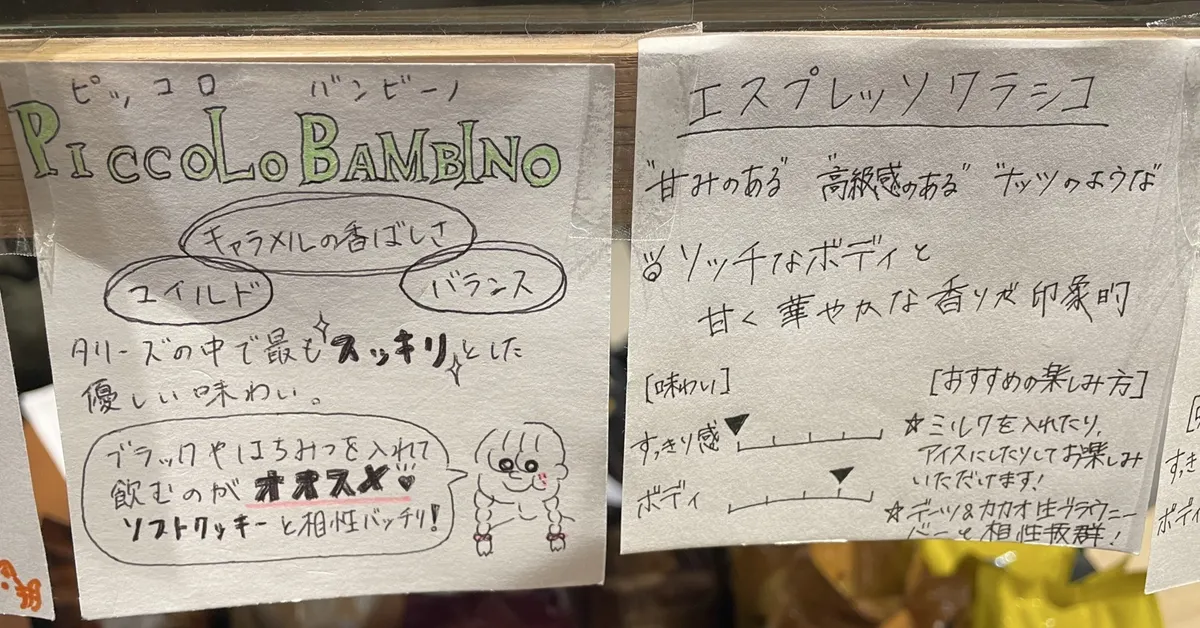 ピッコロ バンビーノ
PICCOLO BAMBINO
キャラメルの香ばしさ
マイルド
バランス
タリーズの中で最もスッキリとした
優しい味わい。
ブラックやはちみつを入れて
飲むのがオススメ♡
ソフトクッキーと相性バッチリ!
エスプレッソクラシコ
"甘みのある" "高級感のある" "ナッツのような"
リッチなボディと
甘く華やかな香りが印象的
[味わい]
すっきり感
ボディ
[おすすめの楽しみ方]
☆ミルクを入れたり、
アイスにしたりしてお楽しみ
いただけます!
☆デーツ&カカオ生ブラウニー
バーと相性抜群!
すっき
ボディ